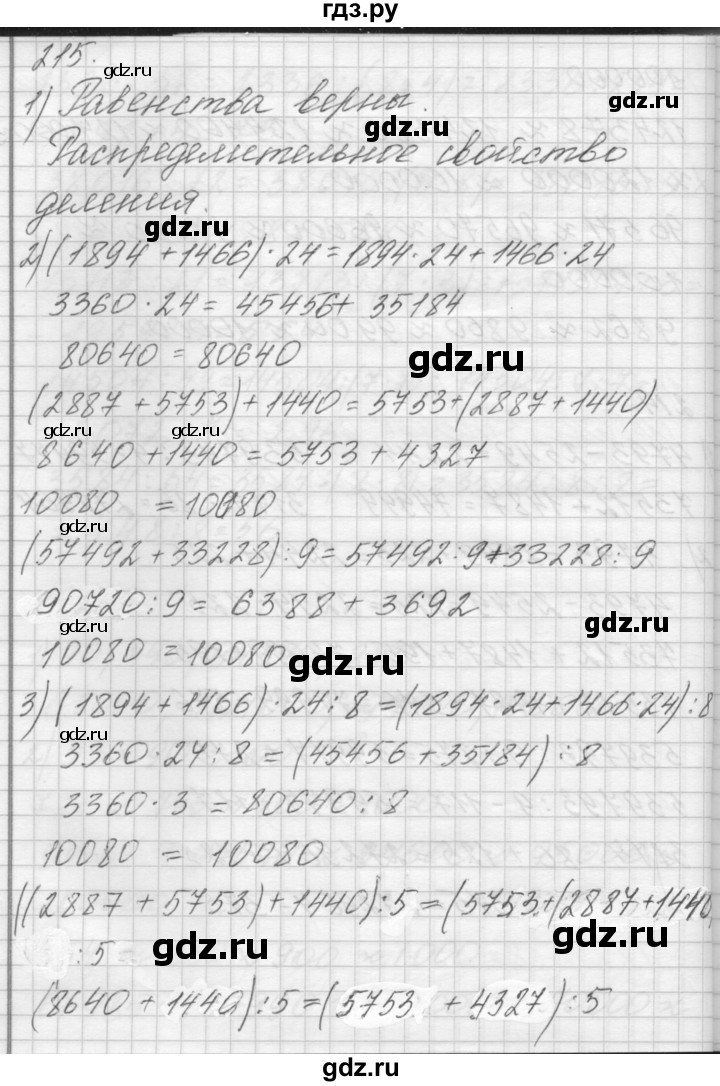 гдз.ру
215.
gdz.ru
1) Равенства верны.
gdz.ru
gdz.ru
Распределительное свойство
деления.
gdz.ru
2) (1894 + 1466) · 24 = 1894 · 24 + 1466 · 24
3360 · 24 = 45456 + 35184
80640 = 80640
gdz.ru
(2887 + 5753) + 1440 = 5753 + (2887 + 1440)
gdz.ru gdz.ru
8640 + 1440 = 5753 + 4327
10080 = 10080
gdz.ru
(57492 + 33228) : 9 = 57492 : 9 + 33228 : 9
90720 : 9 = 6388 + 3692
gdz.ru gdz.ru
10080 = 10080
gdz.ru
3) (1894 + 1466) · 24 : 8 = (1894 · 24 + 1466 · 24) : 8
gdz.ru
3360 · 24 : 8 = (45456 + 35184) : 8
3360 · 3 = 80640 : 8
10080 = 10080
((2887 + 5753) + 1440) : 5 = (5753 + (2887 + 1440
gdz.ru gdz.ru
: 5 =
(8640 + 1440) : 5 = (5753 + 4327) : 5
gdz.ru